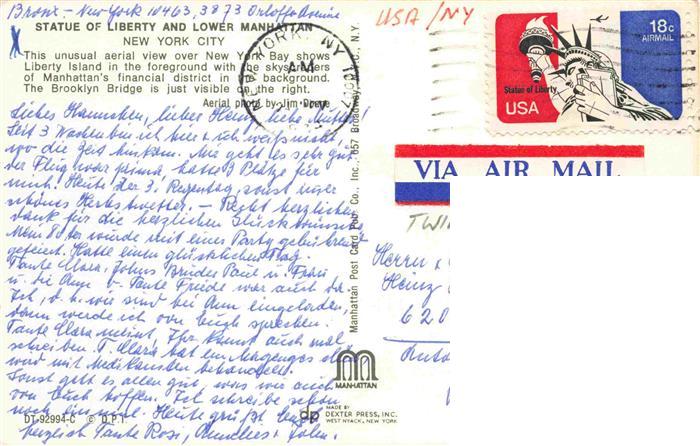 Bronx - New York 10463, 3873 Orloff Avenue
STATUE OF LIBERTY AND LOWER MANHATTAN
NEW YORK CITY
This unusual aerial view over New York Bay shows
Liberty Island in the foreground with the skyscrapers
of Manhattan's financial district in the background.
The Brooklyn Bridge is just visible on the right.
Aerial photo by Jim Doane
Liebes Hannchen, lieber Heinz, liebe
Seit 3 Wochen bin ich hier + ich weiß nicht
wo die Zeit hinkam. Mir geht es sehr gut
der Flug war prima, hatte 3 Plätze für
mich. Heute der 3. Regentag, sonst immer
schönes Herbstwetter. - Recht herzlichen
Dank für die herzlichen Glückwünsche
Mein 80ter wurde mit einer Party
gefeiert. Hatte einen glücklichen Tag.
Tante Clara, Johns Bruder Paul u. Frau
u. die Ann v. Tante Friede war auch da.
wir sind bei Ann eingeladen,
dann werde ich von Euch sprechen.
Tante Clara meint, Ihr könnt auch mal
schreiben. T. Clara hat ein
wird mit Medikamenten behandelt.
Sonst geht es allen gut, was wir auch
von Euch hoffen. Ich schreibe schon
noch einmal. Heute grüßt Euch
herzlich Tante Rosi, Annelies + John.
DT-92994-C © D.P.I.
Manhattan Post Card Pub. Co., Inc., 657 Broadway, N.Y.C., N.Y.
MANHATTAN
dp MADE BY
DEXTER PRESS, INC.
WEST NYACK, NEW YORK
USA / NY
NEW YORK, NY
AM
18c
AIRMAIL
Statue of Liberty
USA
VIA AIR MAIL
Herrn +
Heinz
620